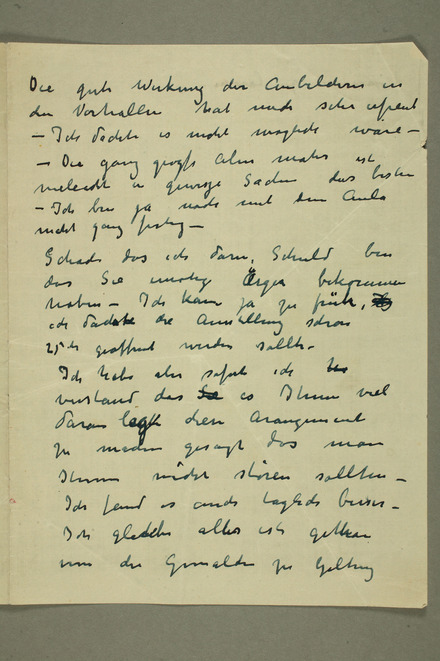 Die gute Wirkung der Aulabildern in
den Vorhallen hat mich sehr erfreut
– Ich dachte es nicht möglich wäre –
– Die ganz grosse Alma mater ist
vieleicht in gewisse Sachen das beste
– Ich bin ja noch mit dem Aula
nicht ganz fertig –
Schade das ich daran, Schuld bin
das Sie unnötig Ärger bekommen
haben – Ich kam ja zu früh,
ich dachte die Ausstellung schon
25 geöffnet werden sollte.
Ich habe aber sofort ich
verstand das es Ihnen viel
daran legte diese Arangement
zu machen gesagt das man
Ihnen nicht stören sollten –
Ich fand es auch täglich besser –
Ich glaube alles ist gethan
um die Gemälden zu Geltung